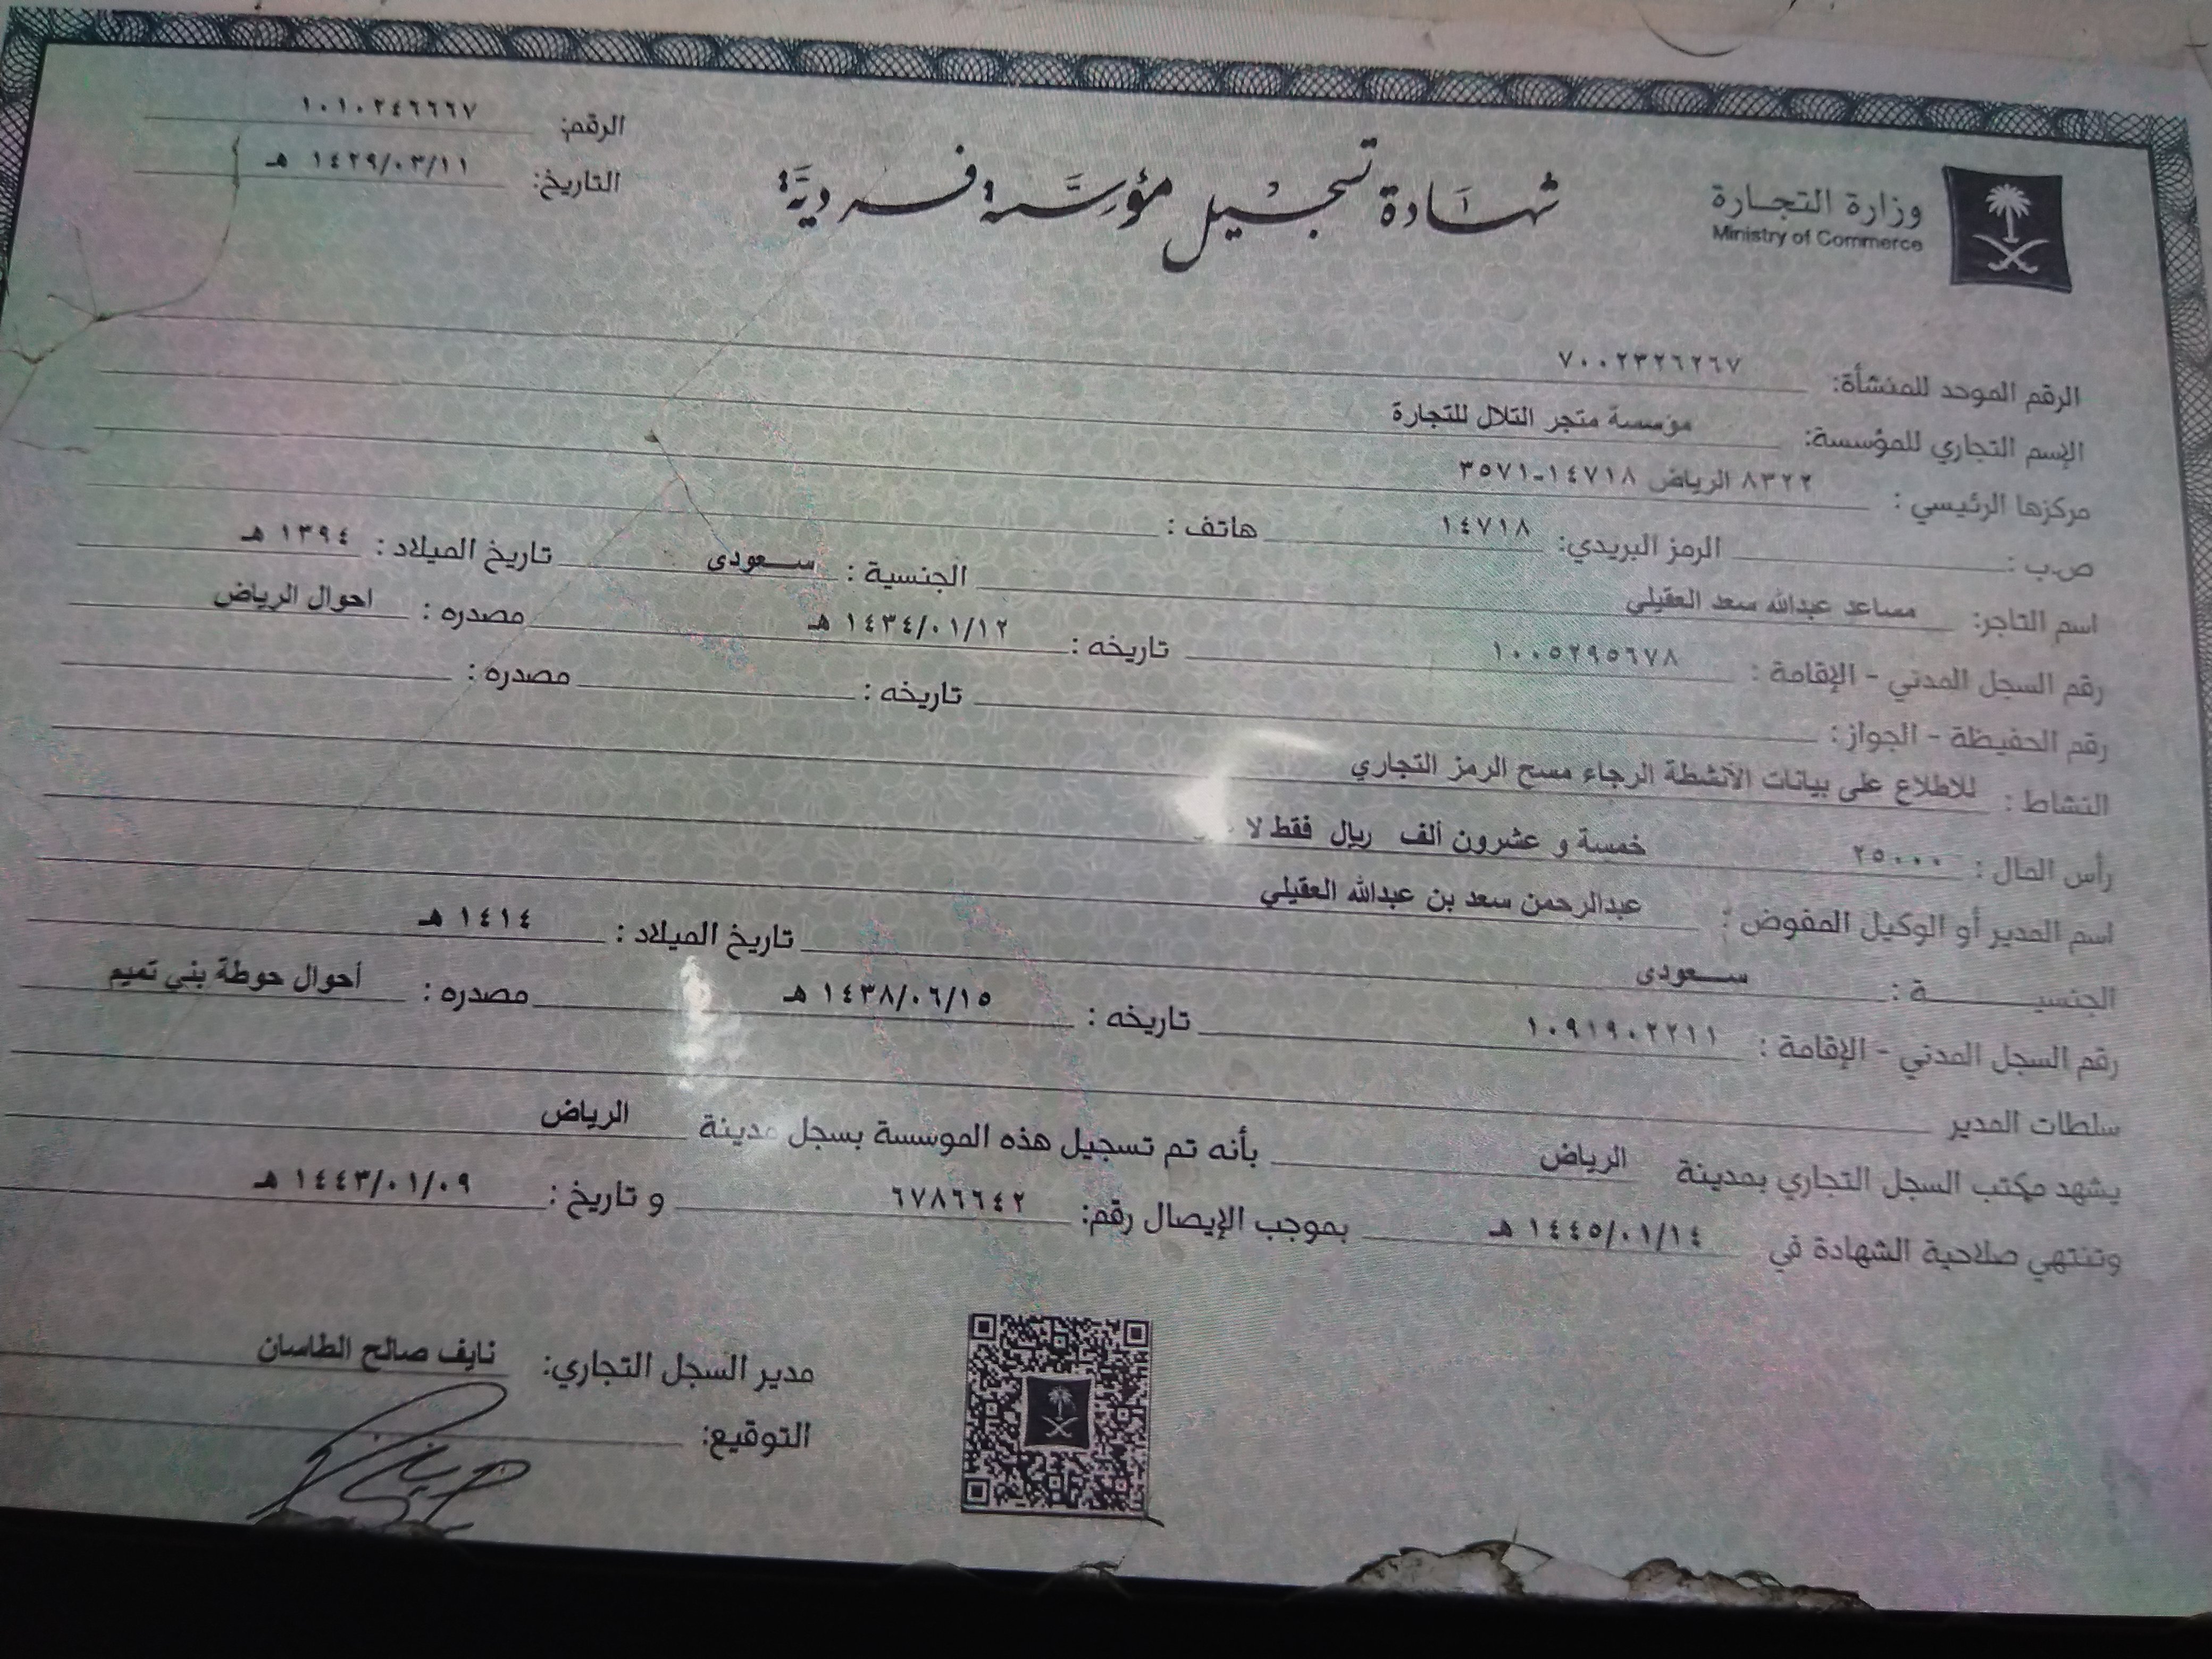 وزارة التجارة
Ministry of Commerce
شهادة تسجيل مؤسسة فردية
الرقم: ١٠١٠٢٤٦٦٦٧
التاريخ: ١٤٢٩/٠٣/١١ هـ
الرقم الموحد للمنشأة: ٧٠٠٢٣٢٦٢٦٧
الإسم التجاري للمؤسسة: مؤسسة متجر التلال للتجارة
مركزها الرئيسي : ٨٣٢٢ الرياض ١٤٧١٨-٣٥٧١
ص.ب : الرمز البريدي: ١٤٧١٨ هاتف :
اسم التاجر: مساعد عبدالله سعد العقيلي الجنسية : سعودى تاريخ الميلاد : ١٣٩٤ هـ
رقم السجل المدني - الإقامة : ١٠٠٥٢٩٥٦٧٨ تاريخه : ١٤٣٤/٠١/١٢ هـ مصدره : احوال الرياض
رقم الحفيظة - الجواز : تاريخه : مصدره :
النشاط : للاطلاع على بيانات الأنشطة الرجاء مسح الرمز التجاري
رأس المال : ٢٥٠٠٠ خمسة و عشرون ألف ريال فقط لا
اسم المدير أو الوكيل المفوض : عبدالرحمن سعد بن عبدالله العقيلي
الجنسيــــة : سعودى تاريخ الميلاد : ١٤١٤ هـ
رقم السجل المدني - الإقامة : ١٠٩١٩٠٢٢١١ تاريخه : ١٤٣٨/٠٦/١٥ هـ مصدره : أحوال حوطة بني تميم
سلطات المدير
يشهد مكتب السجل التجاري بمدينة الرياض بأنه تم تسجيل هذه الموسسة بسجل مدينة الرياض
وتنتهي صلاحية الشهادة في ١٤٤٥/٠١/١٤ هـ بموجب الإيصال رقم: ٦٧٨٦٦٤٢ و تاريخ : ١٤٤٣/٠١/٠٩ هـ
مدير السجل التجاري: نايف صالح الطاسان
التوقيع: